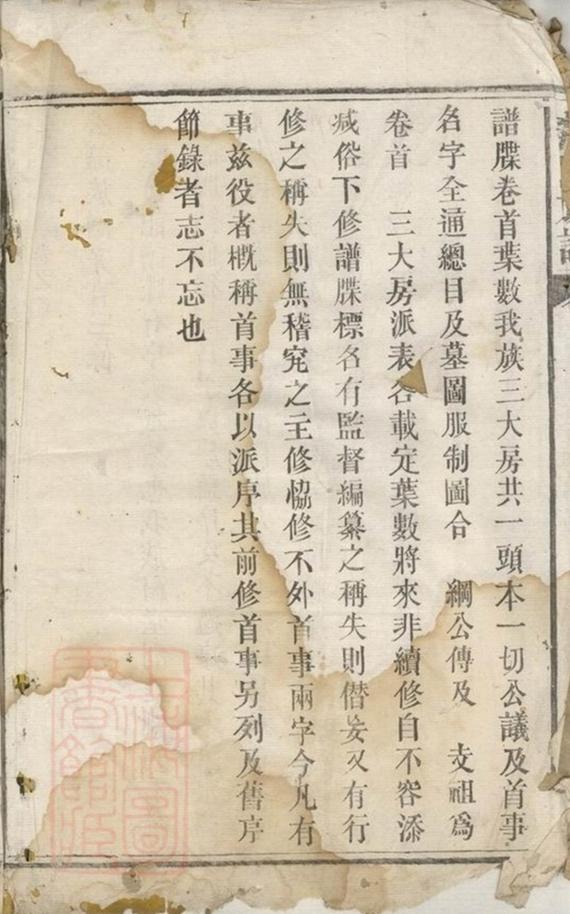 譜牒卷首葉數我族三大房共一頭本一切公議及首事
名字全通總目及墓圖服制圖合　綱公傳及　支祖為
卷首　三大房派表各載定葉數將來非續修自不容添
减俗下修譜牒標名有監督編纂之稱失則僭妄又有行
修之稱失則無稽究之主修恊修不外首事兩字今凡有
事茲役者概稱首事各以派序其前修首事另列及舊序
節錄者志不忘也